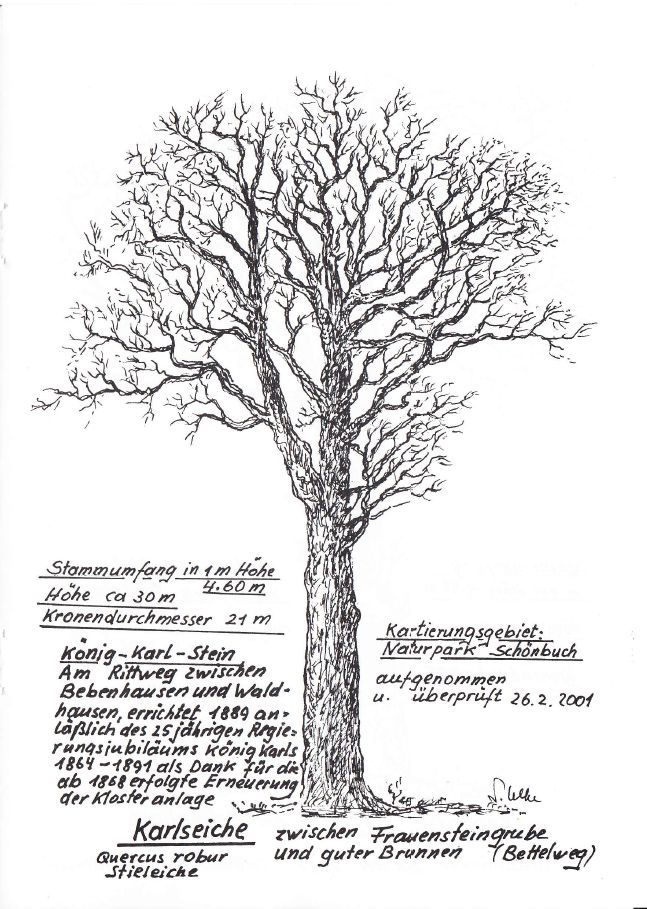 Stammumfang in 1m Höhe
4.60 m
Höhe ca 30 m
Kronendurchmesser 21 m
König-Karl-Stein
Am Rittweg zwischen
Bebenhausen und Wald-
hausen, errichtet 1889 an-
läßlich des 25jährigen Regie-
rungsjubiläums König Karls
1864-1891 als Dank für die
ab 1868 erfolgte Erneuerung
der Klosteranlage
Kartierungsgebiet:
Naturpark Schönbuch
aufgenommen
u. überprüft 26.2.2001
Karlseiche zwischen Frauensteingrube
und guter Brunnen (Bettelweg)
Quercus robur
Stieleiche